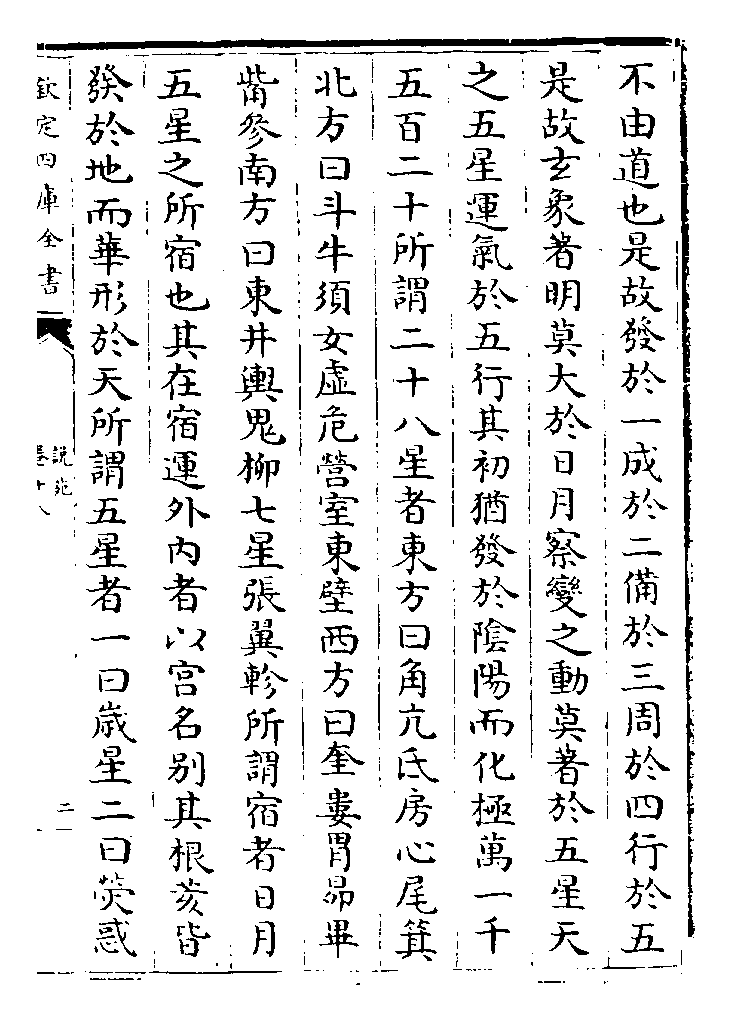 不由道也是故發於一成於二備於三周於四行於五
是故玄象著明莫大於日月察變之動莫著於五星天
之五星運氣於五行其初猶發於陰陽而化極萬一千
五百二十所謂二十八星者東方曰角亢氐房心尾箕
北方曰斗牛須女虛危營室東壁西方曰奎婁胃昴畢
觜參南方曰東井輿鬼柳七星張翼軫所謂宿者日月
五星之所宿也其在宿運外内者以宫名别其根荄皆
發於地而華形於天所謂五星者一曰歲星二曰熒惑
欽定四庫全書
説苑
卷十八
二